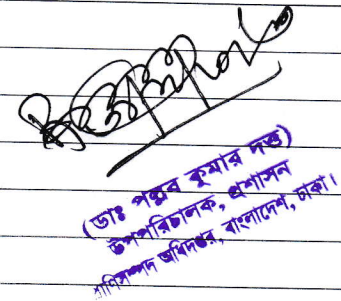 (ডাঃ পল্লব কুমার দত্ত)
উপপরিচালক, প্রশাসন
প্রাণিসম্পদ অধিদপ্তর, বাংলাদেশ, ঢাকা।